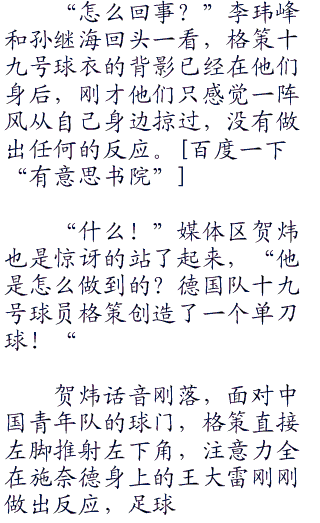 “怎么回事？”李玮峰
和孙继海回头一看，格策十
九号球衣的背影已经在他们
身后，刚才他们只感觉一阵
风从自己身边掠过，没有做
出任何的反应。[百度一下
“有意思书院”]
“什么！”媒体区贺炜
也是惊讶的站了起来，“他
是怎么做到的？德国队十九
号球员格策创造了一个单刀
球！“
贺炜话音刚落，面对中
国青年队的球门，格策直接
左脚推射左下角，注意力全
在施奈德身上的王大雷刚刚
做出反应，足球